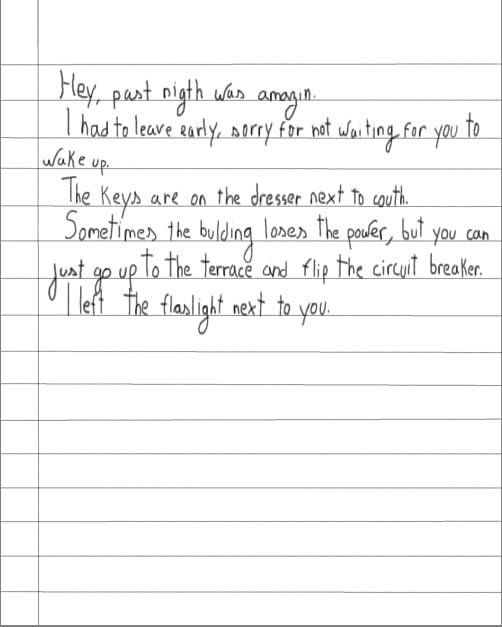 Hey, past nigth was amazin.
I had to leave early, sorry for not waiting for you to
wake up.
The keys are on the dresser next to couth.
Sometimes the bulding loses the power, but you can
just go up to the terrace and flip the circuit breaker.
I left the flaslight next to you.